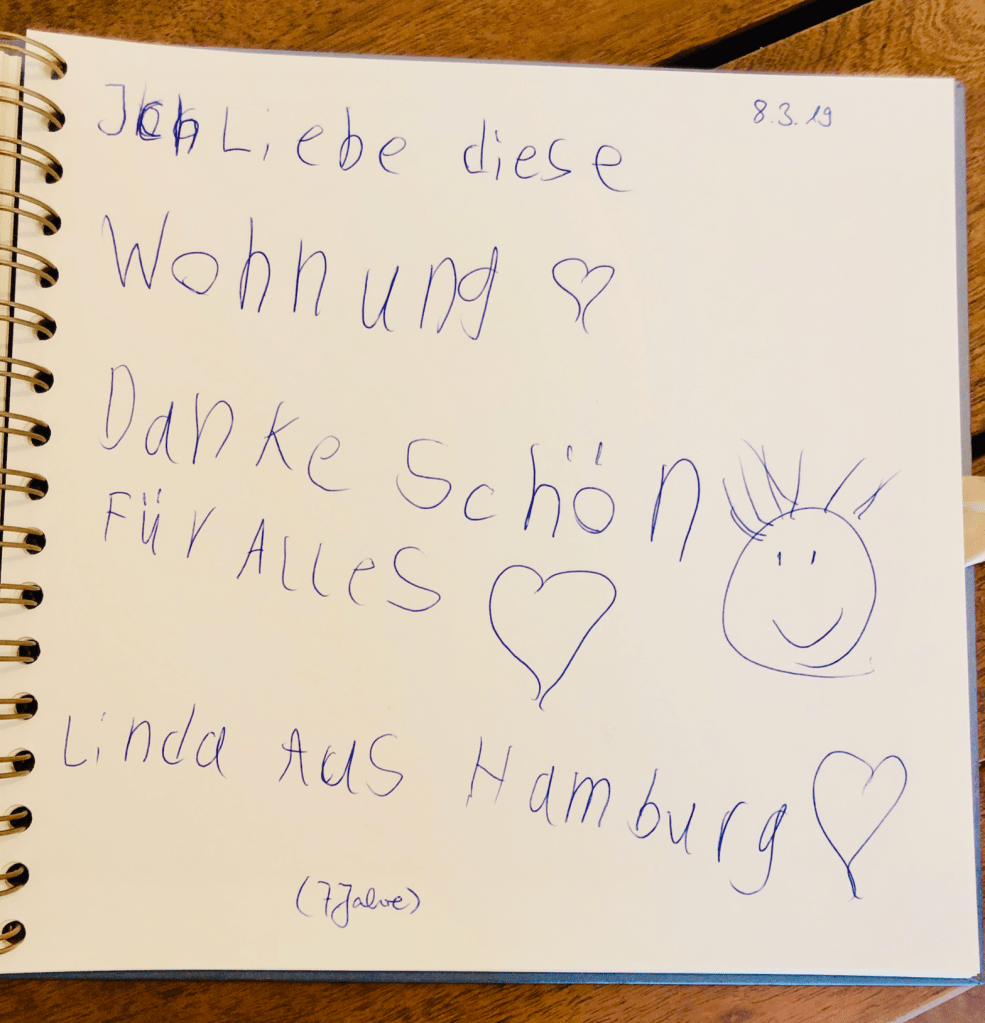 8.3.19
Ich Liebe diese
Wohnung
Danke Schön
Für Alles
Linda Aus Hamburg
(7 Jahre)